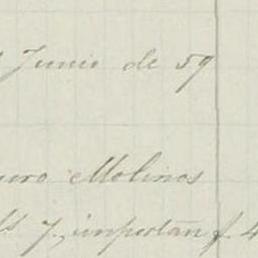 Junio de 59
Molinos
7, importan f. 4